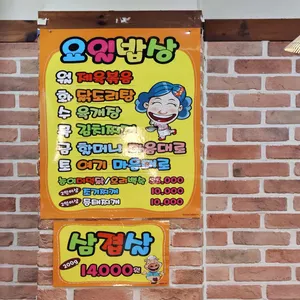 요일밥상
월 제육볶음
화 닭도리탕
수 육개장
목 김치찌개
금 할머니 마음대로
토 여기 마음대로
능이백숙닭/오리백숙 35,000
2인이상 10,000
2인이상 동태찌개 10,000
삼겹살
200g 14,000원